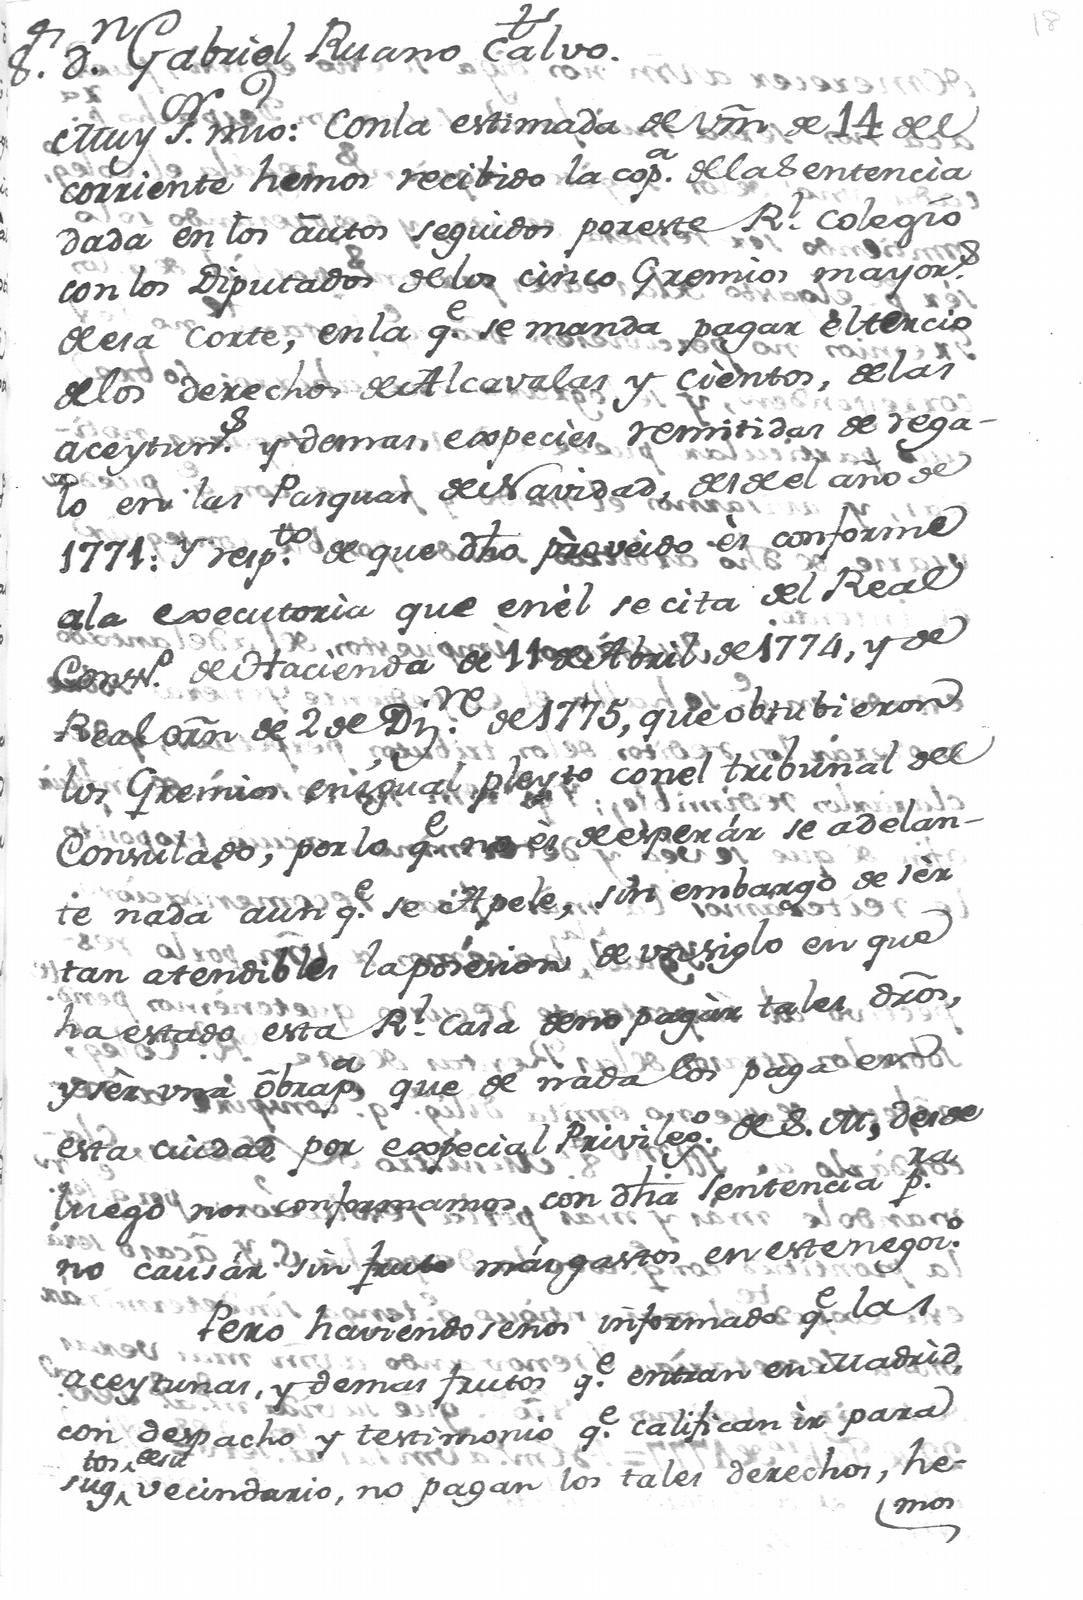 18
S.r d.n Gabriel Ruano Calvo.
Muy S.r mio: Conla estimada de Vm̃ de 14 del
corriente hemos recibido la cop.a dellasentencia
dada en los aũtos seguidos poreste R.l colegio
con los Diputados delos cinco Gremios mayor.s
deesa Corte, enla q.e se manda pagar èl tercio
delos derechos de Alcavalas y Cièntos, delas
aceytun.s y demas especies remitidas de rega-
lo en las Pasquas de Navidad, desde el año de
1771: Y resp.to de que dh̃o proveido ès conforme
ala executoria que enèl se cita del Real
Cons.o de Hacienda de 11 de Abril de 1774, y de
Real or̃n de 2 de Diz.re de 1775, que obtubieron
los Gremios enigual pleyto conel tribunal del
Consulado, porlo q.e no ès deesperár se adelan-
te nada aunq.e se Apele, sin embargo de sér
tan atendibles laposesion de vn siglo en que
ha estado esta R.l Casa deno pagàr tales dr̃os,
y sèr vna õbrap.a que de nada los paga en
esta ciudad por especial Privileg.o de S.M, desde
luego nos conformamos, con dh̃a sentencia p.ra
no causár sin fruto más gastos en este negoc.o
Pero haviendosenos informado q.e las
aceytunas, y demas frutos q.e entran en Madrid,
con despacho y testimonio q.e califican ir para
tos desu
sug vecindario, no pagan los tales derechos, he-
mos